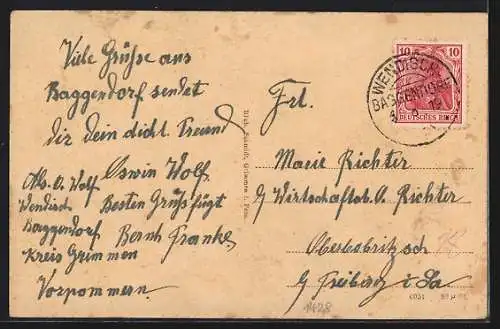 Viele Grüße aus
Baggendorf sendet
dir dein dicht Freund
Oswin Wolf.
Abs. O. Wolf
Wendisch
Baggendorf
Kreis Grimmen
Vorpommern.
Besten Gruß fügt
Bernh Franke
Frl.
Marie Richter
b/ Wirtschaftsb. A. Richter
Oberbobritzsch
b/ Freiberg i/Sa
WENDISCH
BAGGENDORF
10 10
DEUTSCHES REICH
Schmidt, Grimmen i. Pom.
1428